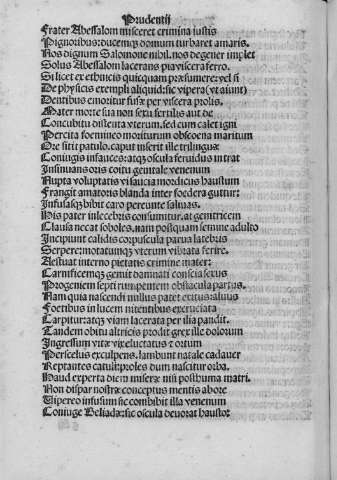 Prudentij
Frater Abessalom misceret crimina iustis
Pignoribus: ducemq; domum turbaret amaris.
Nos dignum Salomone nihil. nos degener implet
Solus Abessalom lacerans pia viscera ferro.
Si licet ex ethnicis quicquam præsumere: vel si
De physicis exempli aliquid: sic vipera (vt aiunt)
Dentibus emoritur fusæ per viscera prolis.
Mater morte sua non sexu fertilis aut de
Concubitu distenta vterum. sed cum calet igni
Percita foemineo moriturum obscoena maritum
Ore sitit patulo. caput inserit ille trilingue
Coniugis in fauces: atq; oscula feruidus intrat
Insinuans oris coitu genitale venenum
Nupta voluptatis vi saucia mordicus haustum
Frangit amatoris blanda inter foedera guttur:
Infusasq; bibit caro pereunte saliuas.
His pater inlecebris consumitur. at genitricem
Clausa necat soboles. nam postquam semine adulto
Incipiunt calidis corpuscula parua latebris
Serpere: motatumq; vterum vibrata ferire.
Aestuat interno pietatis crimine mater:
Carnificemq; gemit damnati conscia sexus
Progeniem septi rumpentem obstacula partus.
Nam quia nascendi nullus patet exitus: aluus
Foetibus in lucem nitentibus excruciata
Carpitur: atq; viam lacerata per ilia pandit.
Tandem obitu altricis prodit grex ille dolorum
Ingressum vitæ vix eluctatus & ortum
Per scelus exculpens. lambunt natale cadauer
Reptantes catuli: proles dum nascitur orba.
Haud experta diem miseræ nisi posthuma matri.
Non dispar nostræ conceptus mentis ab ore
Vipereo infusum sic combibit illa venenum
Coniuge Beliada: sic oscula deuorat haustor